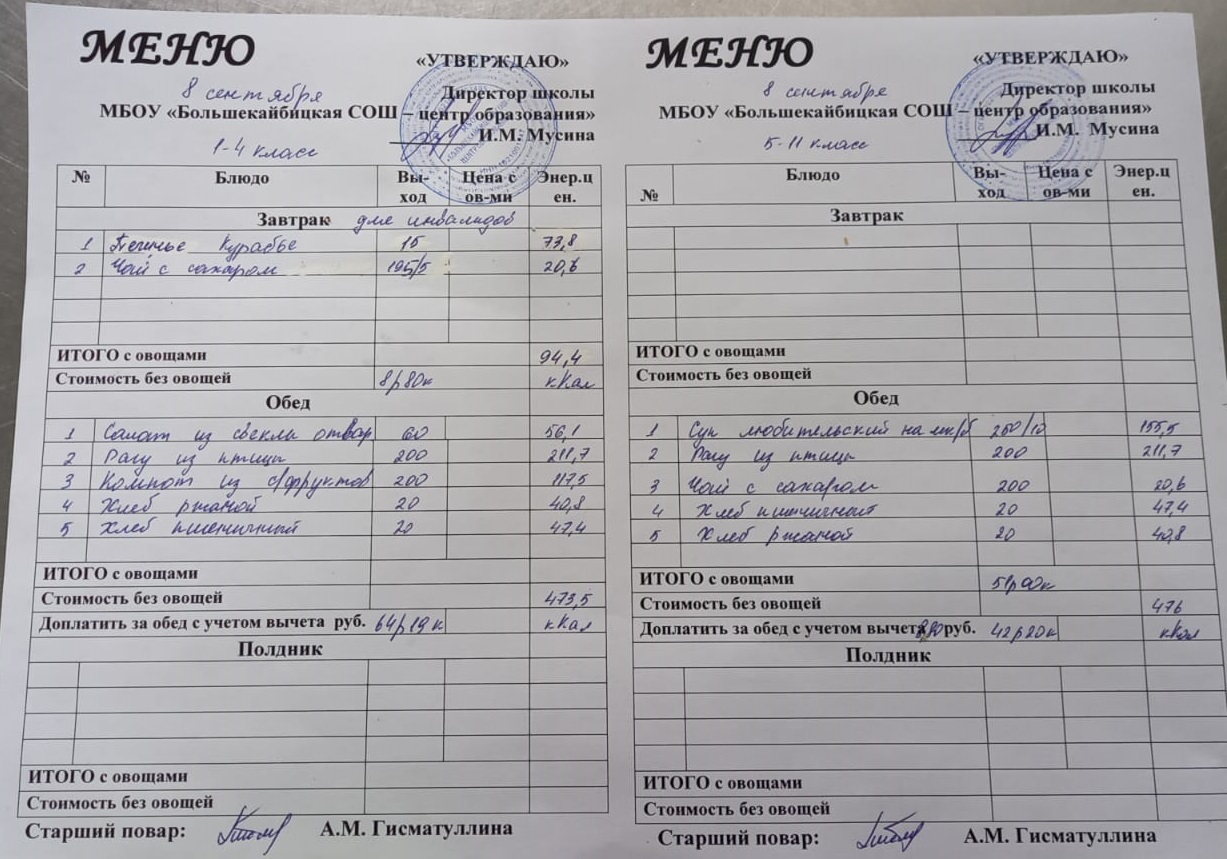 МЕНЮ
«УТВЕРЖДАЮ»
8 сентября
Директор школы
МБОУ «Большекайбицкая СОШ – центр образования»
И.М. Мусина
1-4 класс
№ Блюдо Вы-ход Цена с ов-ми Энер.ц ен.
Завтрак для инвалидов
1 Печенье Курабье 15 73,8
2 Чай с сахаром 195/5 20,6
ИТОГО с овощами 94,4
Стоимость без овощей 8р80к кКал
Обед
1 Салат из свеклы отвар 60 56,1
2 Рагу из птицы 200 211,7
3 Компот из с/фруктов 200 117,5
4 Хлеб ржаной 20 40,8
5 Хлеб пшеничный 20 47,4
ИТОГО с овощами
Стоимость без овощей 473,5
Доплатить за обед с учетом вычета руб. 64р19к кКал
Полдник
ИТОГО с овощами
Стоимость без овощей
Старший повар: А.М. Гисматуллина
МЕНЮ
«УТВЕРЖДАЮ»
8 сентября
Директор школы
МБОУ «Большекайбицкая СОШ – центр образования»
И.М. Мусина
5-11 класс
№ Блюдо Вы-ход Цена с ов-ми Энер.ц ен.
Завтрак
ИТОГО с овощами
Стоимость без овощей
Обед
1 Суп любительский на мк/б 250/10 155,5
2 Рагу из птицы 200 211,7
3 Чай с сахаром 200 20,6
4 Хлеб пшеничный 20 47,4
5 Хлеб ржаной 20 40,8
ИТОГО с овощами 51р00к
Стоимость без овощей 476
Доплатить за обед с учетом вычета руб. 42р20к кКал
Полдник
ИТОГО с овощами
Стоимость без овощей
Старший повар: А.М. Гисматуллина